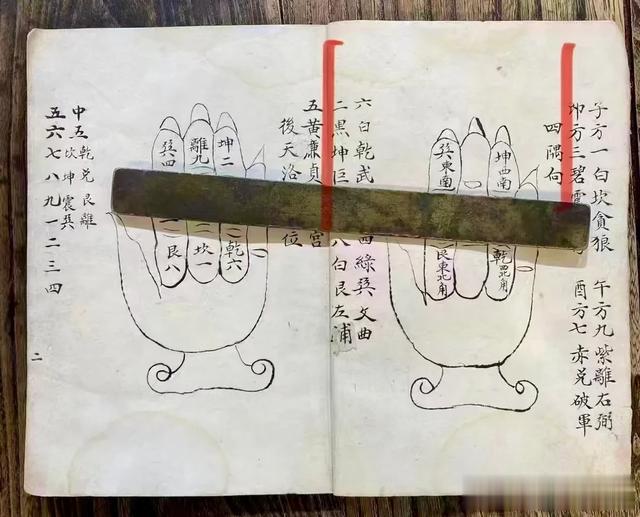 子方一白坎貪狼 午方九紫離右弼
卯方三碧震 酉方七赤兌破軍
四隅向
坤西南
巽東南
乾 角
艮東北角
六白乾武 四綠巽文曲
二黑坤巨 八白艮左浦
五黃廉貞 宮
後天洛 位
坤二
離九
巽四
乾六
坎一
艮八
中五乾兌艮離
坎坤震巽
五六七八九一二三四
二